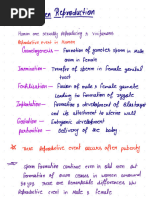 Human Reproduction
Human are sexually reproducing & viviparous
Reproductive event in Human
Gametogenesis – Formation of gametes sperm in male
ovum in female
Insemination – Transfer of sperm in female genital
tract
Fertilisation – Fusion of male & female gamete
leading to formation of zygote
Implantation – & development of blastocyst
and its attachment to uterine wall
Gestation – Embryonic development
parturition – delivery of the baby
These Reproductive event occurs after puberty
Sperm Formation continue even in old men but
Formation of ovum ceases in women around
50 yrs. There are remarkable differences b/w
Reproductive event in male & female